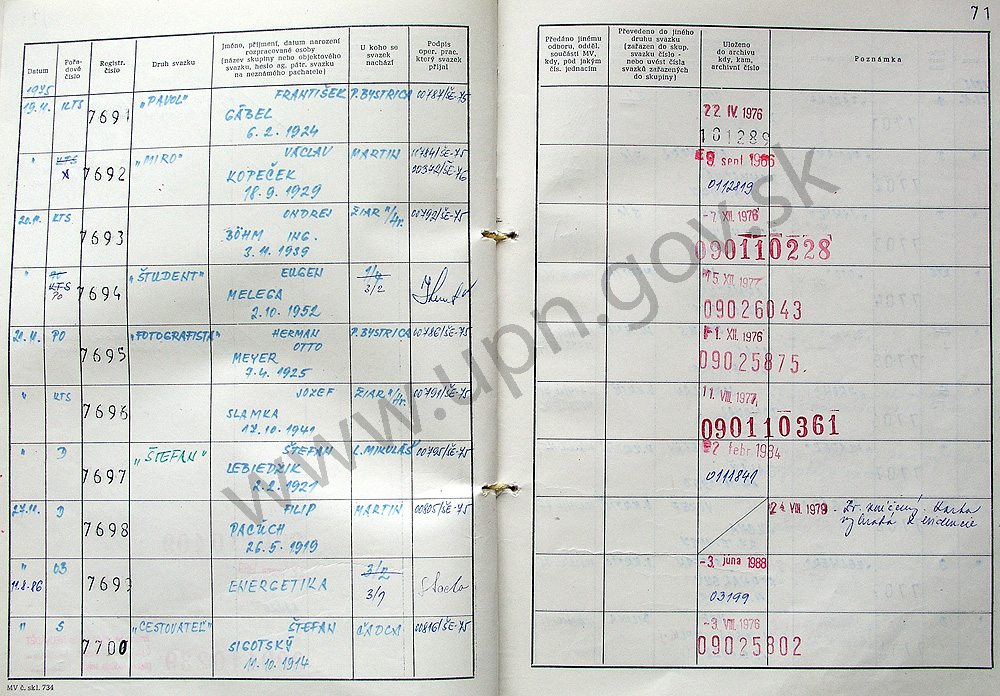 71
Datum
Pořadové číslo
Registr. číslo
Druh svazku
Jméno, příjmení, datum narození rozpracované osoby (název skupiny nebo objektového svazku, heslo ag. pátr. svazku na neznámého pachatele)
U koho se svazek nachází
Podpis oper. prac. který svazek přijal
Předáno jinému odboru, odděl. součásti MV, kdy, pod jakým čís. jednacím
Převedeno do jiného druhu svazku (zařazen do skup. svazku číslo - nebo uvést čísla svazků zařazených do skupiny)
Uloženo do archivu kdy, kam, archivní číslo
Poznámka
1975
19.11. KTS 7691 "PAVOL" FRANTIŠEK P. BYSTRICA 00787/ŠE-75
GÁBEL
6. 2. 1924
22 IV. 1976
101289
" KTS 7692 "MIRO" VÁCLAV MARTIN 00784/ŠE-75
A KOPEČEK 00372/ŠE-76
18. 9. 1929
9 sept. 1986
0112819
20.11. KTS 7693 ONDREJ ŽIAR n/Hr. 00792/ŠE-75
BÖHM ING.
3. 11. 1939
-7 XII. 1976
090110228
" KTS PO 7694 "ŠTUDENT" EUGEN 1/4
MELEGA 3/2
2. 10. 1952
15. XII. 1977
09026043
21.11. PO 7695 "FOTOGRAFISTA" HERMAN P. BYSTRICA 00786/ŠE-75
OTTO
MEYER
7. 4. 1925
-1. XII. 1976
09025875.
" KTS 7696 JOZEF ŽIAR n/Hr. 00791/ŠE-75
SLAMKA
17. 10. 1941
11. VIII. 1977
090110361
" D 7697 "ŠTEFAN" ŠTEFAN L. MIKULÁŠ 00795/ŠE-75
LEBIEDZIK
2. 2. 1921
2 febr 1984
0111841
27.11. D 7698 FILIP MARTIN 00805/ŠE-75
PACÚCH
26. 5. 1919
24. VIII. 1979 - Zv. zničený. Karta
vybratá z evidencie
" OB 7699 ENERGETIKA 3/2
11.8.86 3/1
-3. júna 1988
03199
" S 7700 "CESTOVATEĽ" ŠTEFAN ČADCA 00816/ŠE-75
SIGOTSKÝ
11. 10. 1914
-3. VIII. 1976
09025802
MV č. skl. 734
www.upn.gov.sk